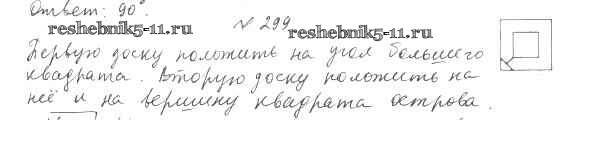 Ответ: 90°.
reshebnik5-11.ru
№ 299
reshebnik5-11.ru
Первую доску положить на угол большего
квадрата. Вторую доску положить на
неё и на вершину квадрата острова.